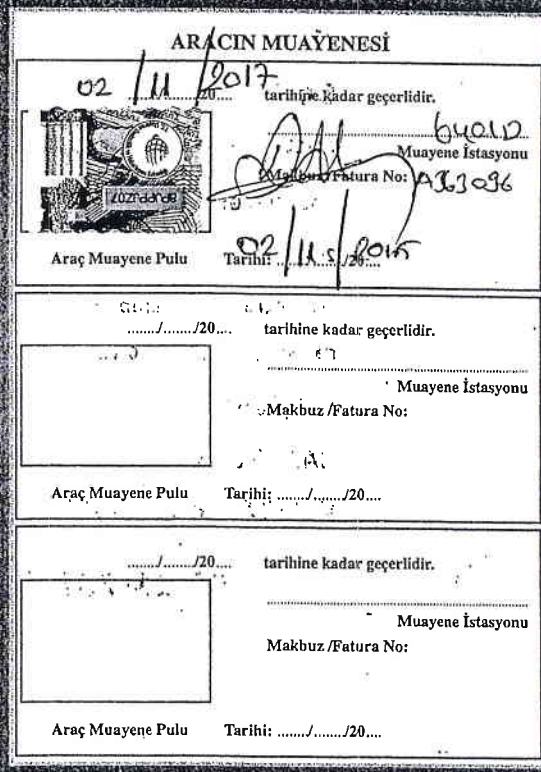 ARACIN MUAYENESİ
02 / 11 / 2017 tarihine kadar geçerlidir.
Muayene İstasyonu
Makbuz/Fatura No: A363096
Araç Muayene Pulu Tarihi: 02/11/2015
....../......../20.... tarihine kadar geçerlidir.
Muayene İstasyonu
Makbuz /Fatura No:
Araç Muayene Pulu Tarihi: ......../......../20....
......./......../20.... tarihine kadar geçerlidir.
Muayene İstasyonu
Makbuz /Fatura No:
Araç Muayene Pulu Tarihi: ......../......../20....